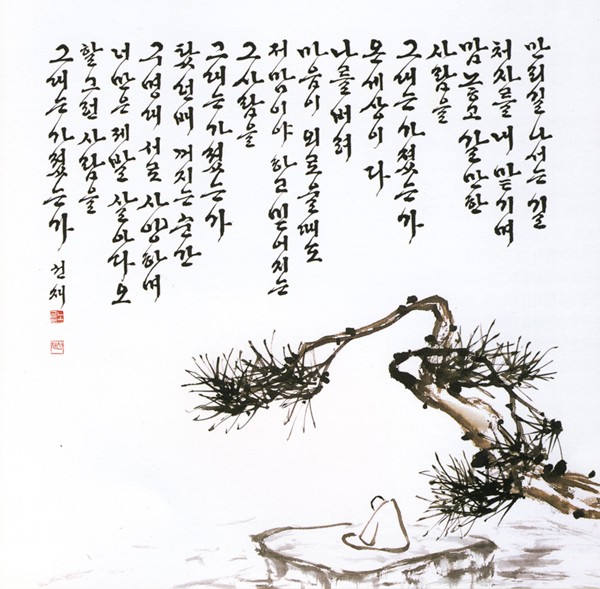 만리길 나서는 길
처자를 내 맡기며
맘 놓고 갈 만한
사람을
그대는 가졌는가
온 세상이 다
나를 버려
마음이 외로울 때도
저 맘이야 하고 믿어지는
그 사람을
그대는 가졌는가
탔던 배 꺼지는 순간
구명대 서로 사양하며
너만은 제발 살아다오
할 그런 사람을
그대는 가졌는가